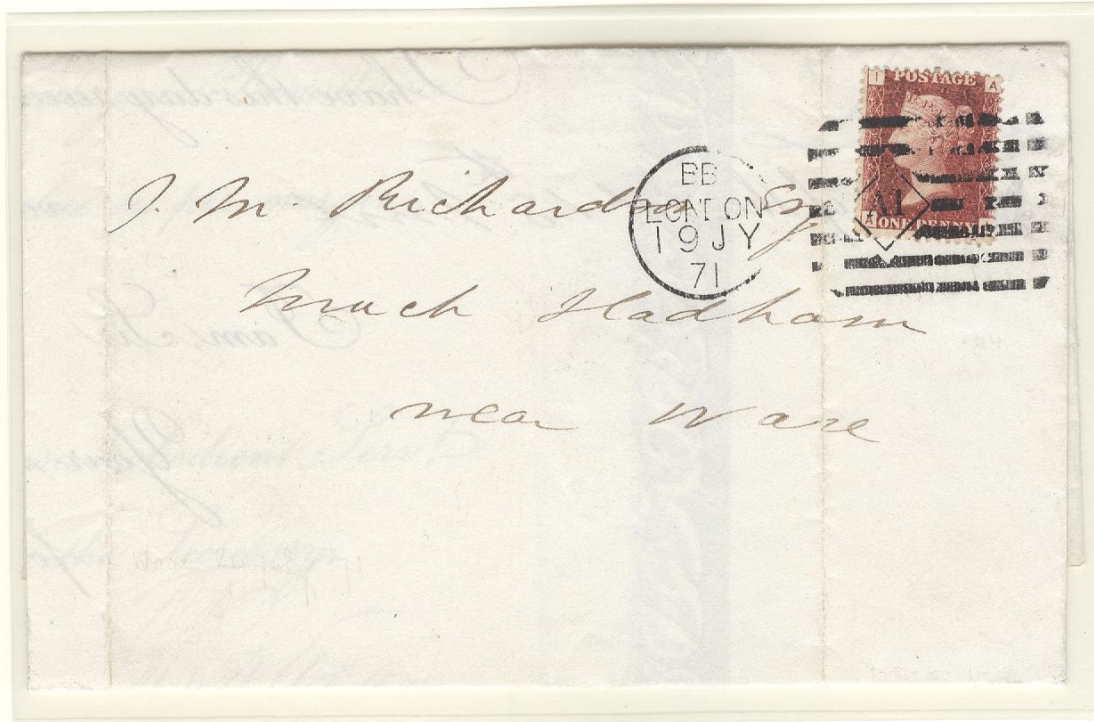 I POSTAGE A
A1
A ONE PENNY I
BB
LONDON
19 JY
71
J. M. Richardson Esq
Much Hadham
near Ware